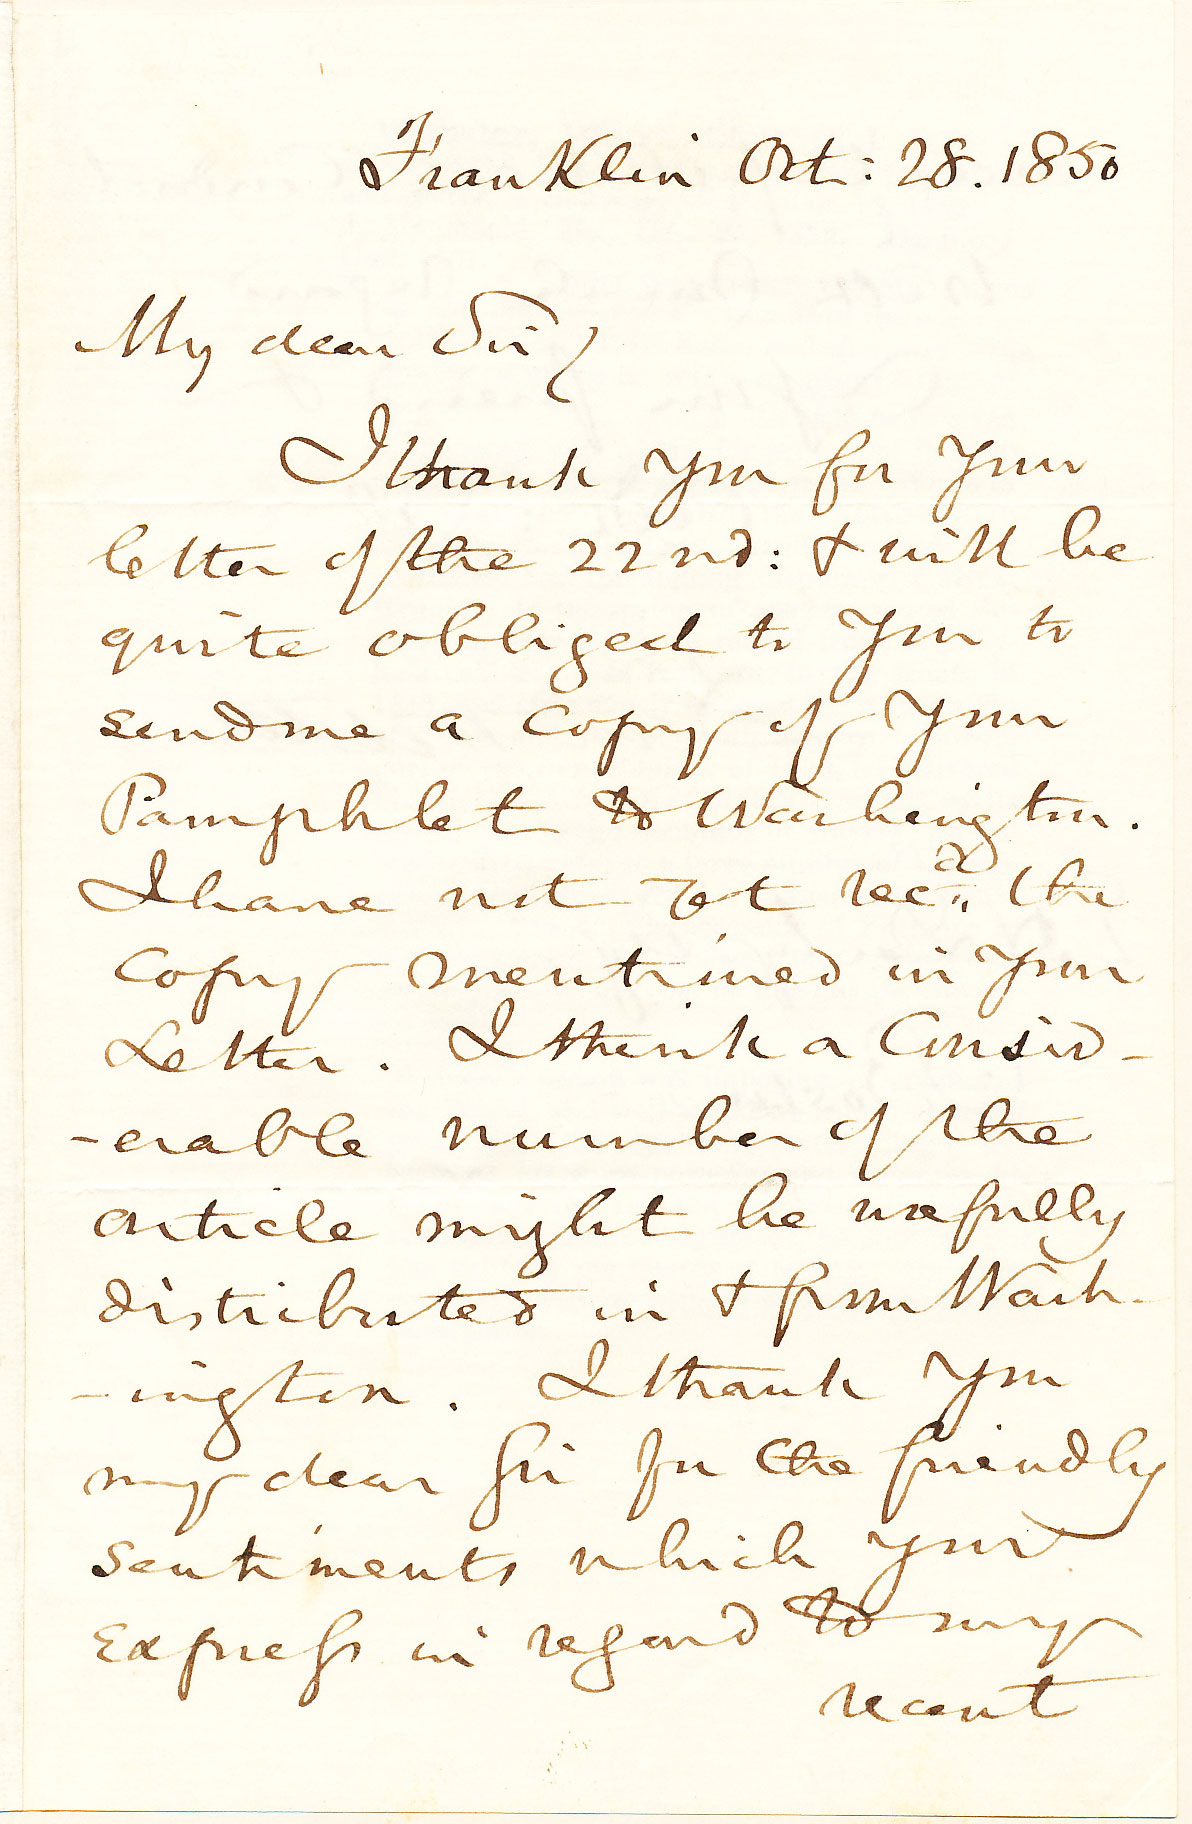 Franklin Oct: 28. 1850
My dear Sir
I thank you for your
letter of the 22nd: & will be
quite obliged to you to
send me a copy of your
Pamphlet to Washington.
I have not yet recd the
Copy mentioned in your
Letter. I think a Consid-
-erable number of the
article might be usefully
distributed in & from Wash-
-ington. I thank you
my dear Sir for the friendly
sentiments which you
Express in regard to my
recent